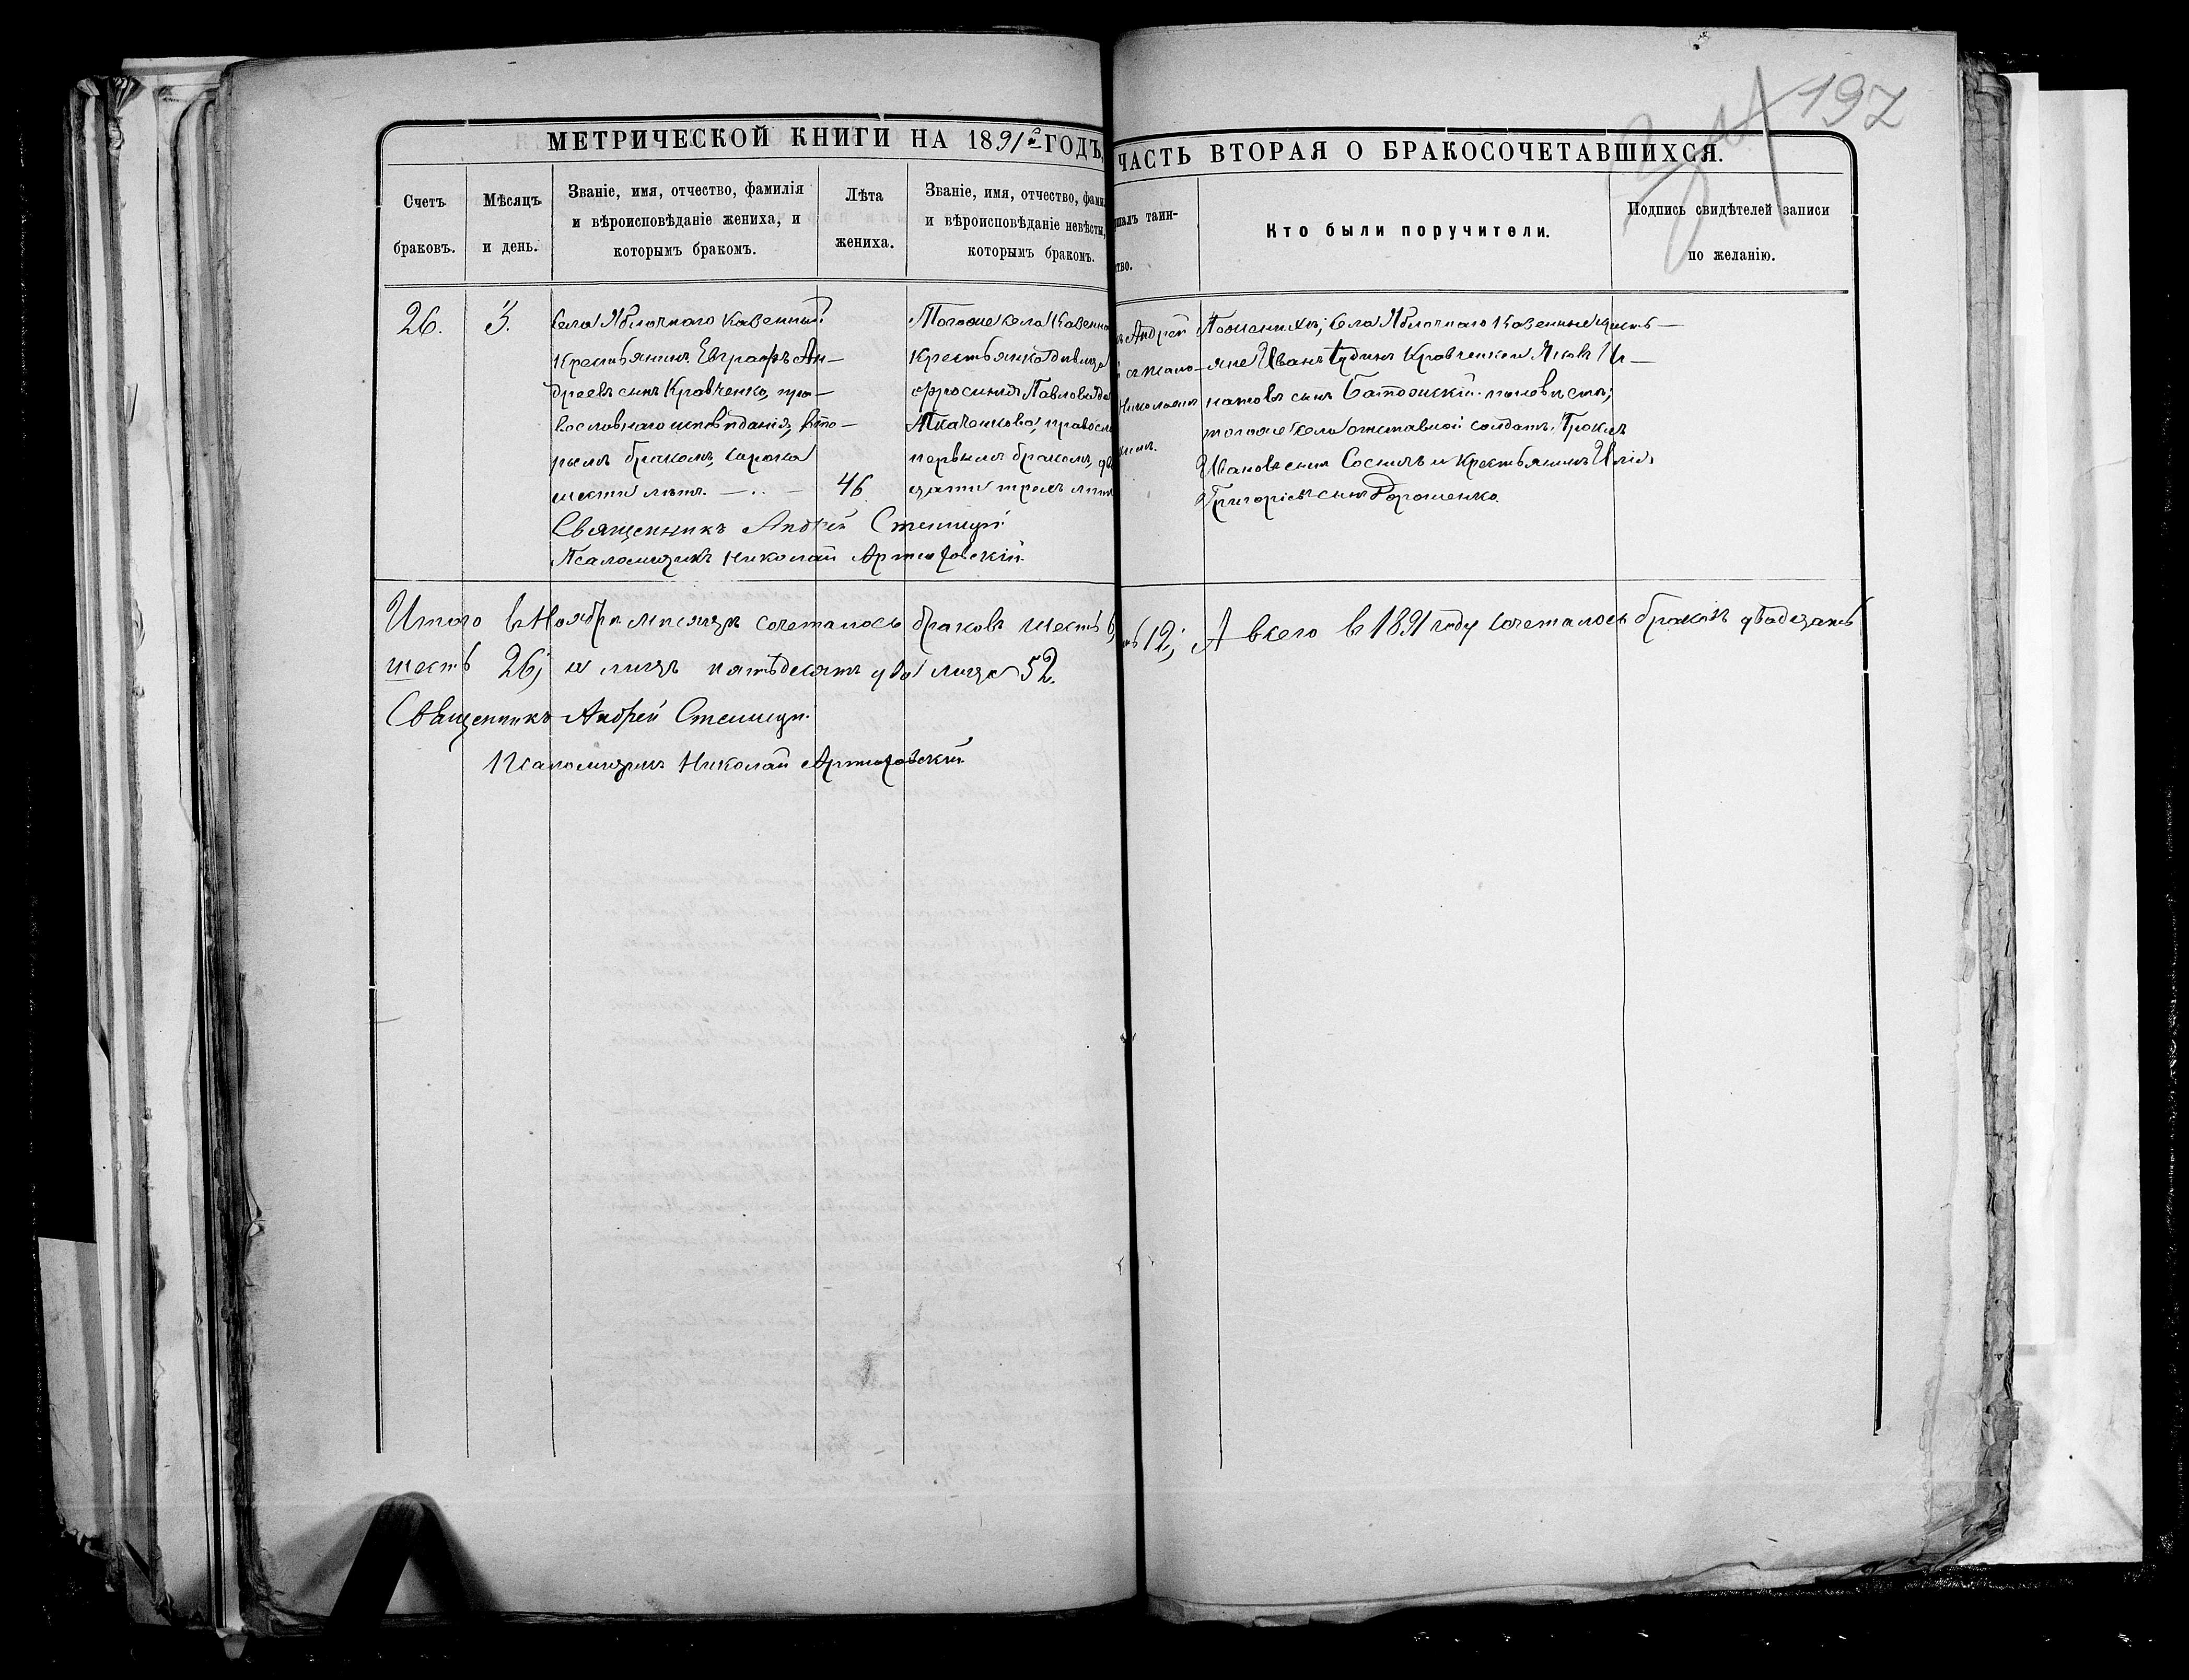 197
МЕТРИЧЕСКОЙ КНИГИ НА 1891й ГОДЪ,
ЧАСТЬ ВТОРАЯ О БРАКОСОЧЕТАВШИХСЯ.
Счетъ браковъ.
Мѣсяцъ и день.
Званіе, имя, отчество, фамилія
и вѣроисповѣданіе жениха, и
которымъ бракомъ.
Лѣта жениха.
Званіе, имя, отчество, фами
и вѣроисповѣданіе невѣсты,
которымъ бракомъ.
шалъ таин-
тво.
Кто были поручители.
Подпись свидѣтелей записи
по желанію.
26.
3.
Села Яблочнаго казенный
крестьянинъ Евграфъ Ан-
дреевъ сынъ Кравченко, пра-
вославнаго исповѣданія, вто-
рымъ бракомъ, сорока
шести лѣтъ.
46.
Тогоже села казенна
крестьянка дѣвица
Ефросинія Павлова до
Ткаченкова, правосл
первымъ бракомъ, два
цати трехъ лѣтъ
Андрей
съ псало-
Николаемъ
По женихѣ; села Яблочнаго казенные кресть-
яне Иванъ Кравченко и Яковъ Иг-
натовъ сынъ по невѣстѣ;
тогоже села отставной солдатъ
Ивановъ сынъ и крестьянинъ Илія
Григорьевъ сынъ Дорошенко.
Священникъ Андрей
Псаломщикъ Николай Артюховскій.
Итого въ Ноябрѣ мѣсяцѣ сочеталось браковъ шесть 6,
12; А всего въ 1891 году сочеталось браковъ двадцать
шесть 26; а лицъ пятьдесятъ два лица 52.
Священникъ Андрей
Псаломщикъ Николай Артюховскій.